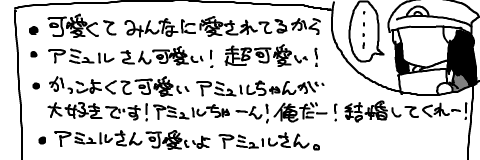 • 可愛くてみんなに愛されてるから
• アミュルさん可愛い！超可愛い！
• かっこよくて可愛いアミュルちゃんが
大好きです！アミュルちゃーん！俺だー！結婚してくれー！
• アミュルさん可愛いよアミュルさん。
……